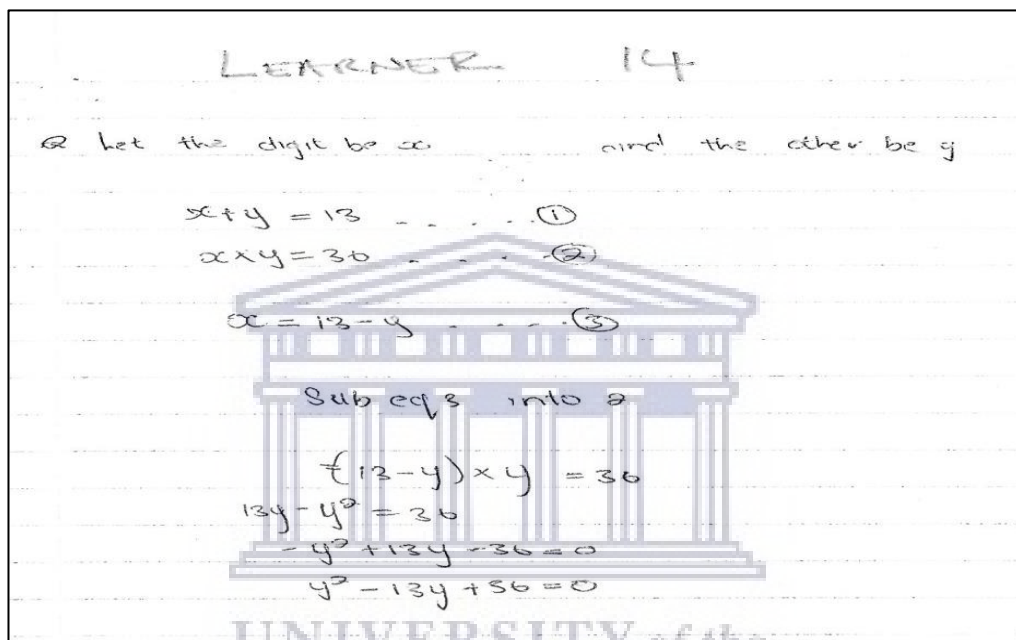 LEARNER 14
Let the digit be x and the other be y
x+y = 13 - - . . . ①
x×y = 36 . . . . . ②
x = 13-y . . . . . ③
Sub eq 3 into 2
(13-y)×y = 36
13y - y² = 36
-y² + 13y - 36 = 0
y² - 13y + 36 = 0
UNIVERSITY of the